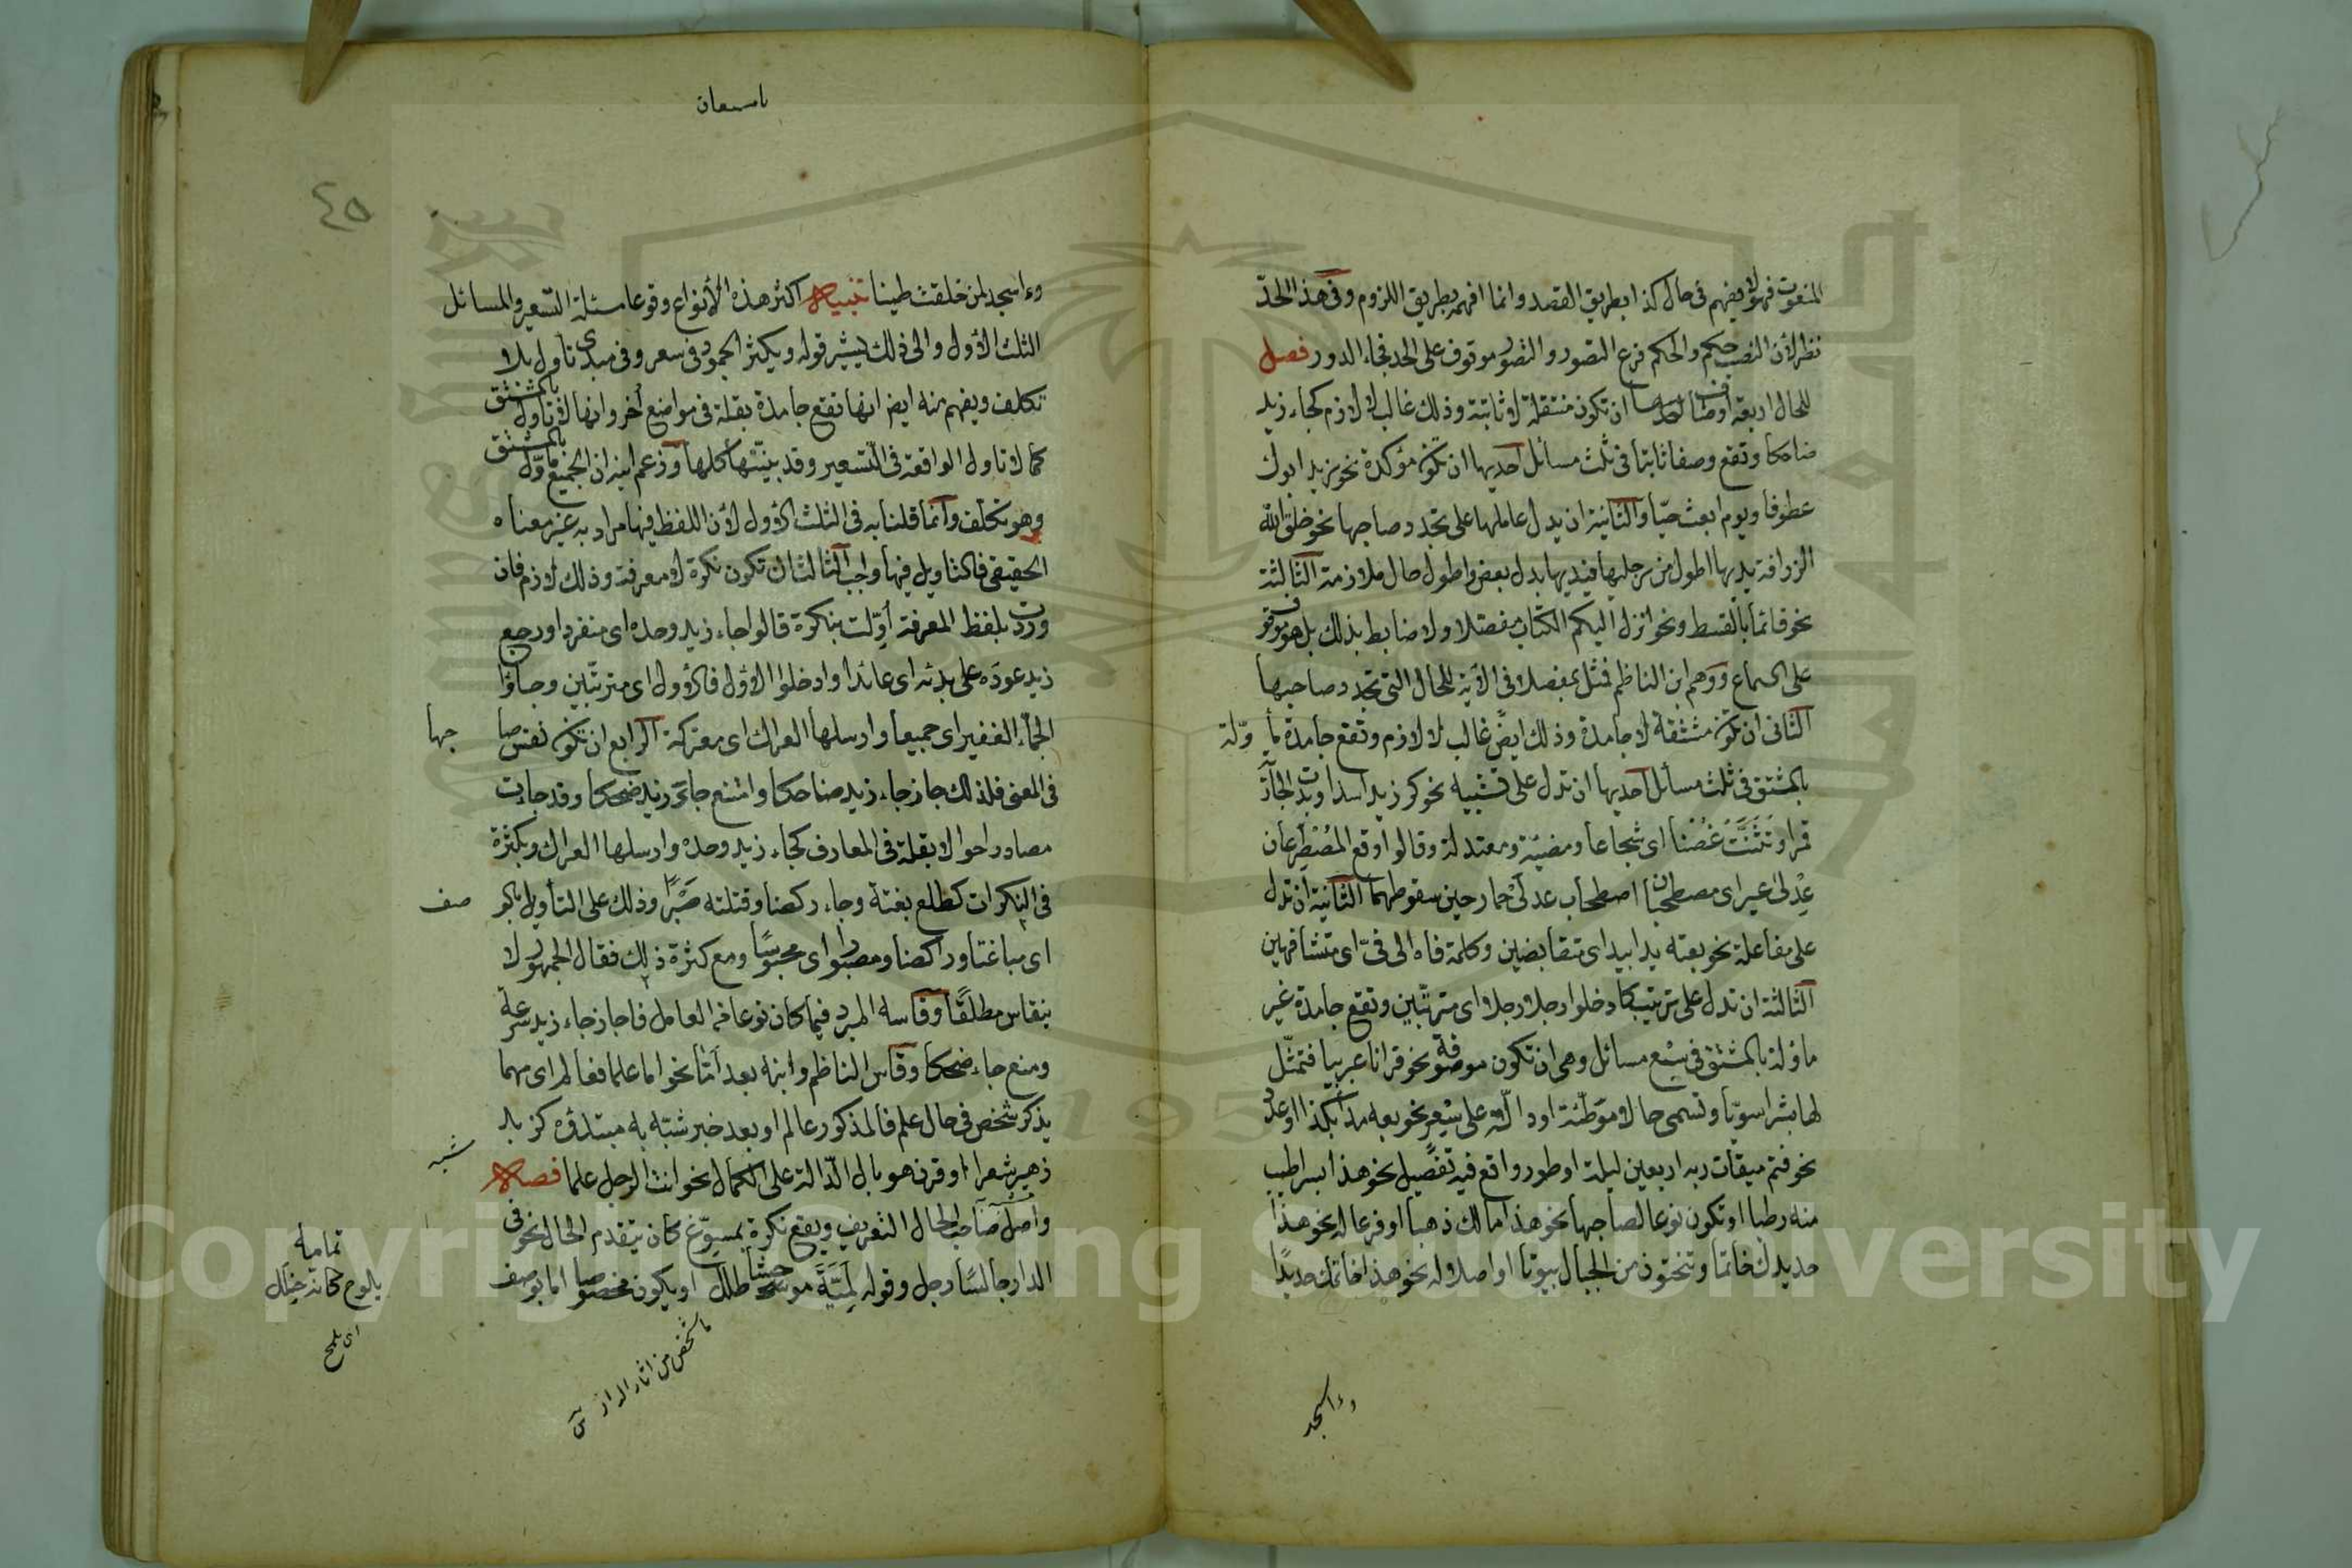 المنعوت فهو لا يفهم في حال كذا بطريق القصد وانما افهمه بطريق اللزوم وفي هذا الحدّ
نظر لأن النصب حكم والحكم فرع التصور والتصور موقوف على الحد فجاء الدور فصل
للحال اربعة اوصاف احدها ان تكون منتقلة لا ثابتة وذلك غالب لا لازم كجاء زيد
ضاحكا وتقع وصفا ثابتا في ثلث مسائل احديها ان تكون مؤكدة نحو زيد ابوك
عطوفا ويوم ابعث حيّا والثانية ان يدل عاملها على تجدد صاحبها نحو خلق الله
الزرافة يديها اطول من رجليها فيديها بدل بعض واطول حال ملازمة الثالثة
نحو قائما بالقسط ونحو انزل اليكم الكتاب مفصلا ولا ضابط بذلك بل هو موقوف
على السماع ووهم ابن الناظم فمثل بمفصلا في الآية للحال التي تجدد صاحبها
الثاني ان تكون مشتقة لا جامدة وذلك ايضً غالب لا لازم وتقع جامدة مأ وّلة
بالمشتق في ثلث مسائل احديها ان تدل على تشبيه نحو كر زيد اسدا وبدت الجارية
قمرا وتَثَنَّتْ غُصْنا اي شجاعا ومضيئة ومعتدلة وقالوا وقع المُصْطَرِعان
عِدْلَيْ عير اي مصطحبان اصطحاب عدلي حمار حين سقوطهما الثانية ان تدل
على مفاعلة نحو بعته يدا بيد اي متقابضين وكلمته فاه الى فيّ اي متشافهين
الثالثة ان تدل على ترتيب كادخلوا رجلا رجلا اي مترتبين وتقع جامدة غير
مأولة بالمشتق في سبع مسائل وهي ان تكون موصوفة نحو قرانا عربيا فتمثّل
لها بشرا سويّا وتسمى حالا موَطّئة او دالّة على سِعْر نحو بعه مدا بكذا او عدد
نحو فتم ميقات ربه اربعين ليلة او طور واقع فيه تفضيل نحو هذا بسرا اطيب
منه رطبا او تكون نوعا لصاحبها نحو هذا مالك ذهبا او فرعا له نحو هذا
حديدك خاتما وتنحتون من الجبال بيوتا او اصلا له نحو هذا خاتمك حديدًا
وءاسجد
باسمعان
٤٥
وءاسجد لمن خلقت طينا تنبيه اكثر هذه الأنواع وقوعا مسئلة التسعير والمسائل
الثلث الأول والى ذلك يشير قوله ويكثر الجمود في سعر وفي مبدي تأول بلا
تكلف ويفهم منه ايضا انها تقع جامدة بقلة في مواضع أخر وانها لا تأول بالمشتق
كما لا تأول الواقعة في التسعير وقد بينتها كلها وزعم ابنه ان الجميع مأوّل بالمشتق
وهو تكلف وانما قلنا به في الثلث الأول لأن اللفظ فيها مراد به غير معناه
الحقيقي فالتأويل فيها واجب الثالث ان تكون نكرة لا معرفة وذلك لازم فان
وردت بلفظ المعرفة أوّلت بنكرة قالوا جاء زيد وحده اي منفردا ورجع
زيد عوده على بدئه اي عائدا وادخلوا الأول فالأول اي مترتبين وجاؤا
الجمّاء الغفير اي جميعا وارسلها العراك اي معتركة الرابع ان تكون نفس صا حبها
في المعنى فلذلك جاز جاء زيد ضاحكا وامتنع جاء زيد ضحكا وقد جاءت
مصادر احوالا بقلة في المعارف كجاء زيد وحده وارسلها العراك وبكثرة
في النكرات كطلع بغتة وجاء ركضا وقتلته صَبْرًا وذلك على التأويل بالو صف
اي مباغتا وراكضا ومصبورا اي محبوسًا ومع كثرة ذلك فقال الجمهور لا
ينقاس مطلقًا وقاسه المبرد فيما كان نوعا من العامل فاجاز جاء زيد سرعة
ومنع جاء ضحكا وقاس الناظم وابنه بعد أمّا نحو اما علما فعالم اي مهما
يذكر شخص في حال علم فالمذكور عالم او بعد خبر شبّه به مبتدؤه كزيد
زهير شعرا او قرن هو بال الدّالة على الكمال نحو انت الرجل علما فصل
شبه
واصل صاحب الحال التعريف ويقع نكرة بمسوّغ كان يتقدم الحال نحو في
الدار جالسًا رجل وقوله لِمَيَّةَ موحشا طلل او يكون مخصوصا اما بوصف
تمامه
يلوح كانه خلل
اي يلمع
ما شخص من اثار الدار